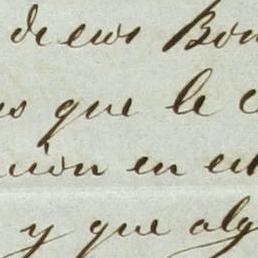 de esos Bon
os que le c
nion en es
y que alg